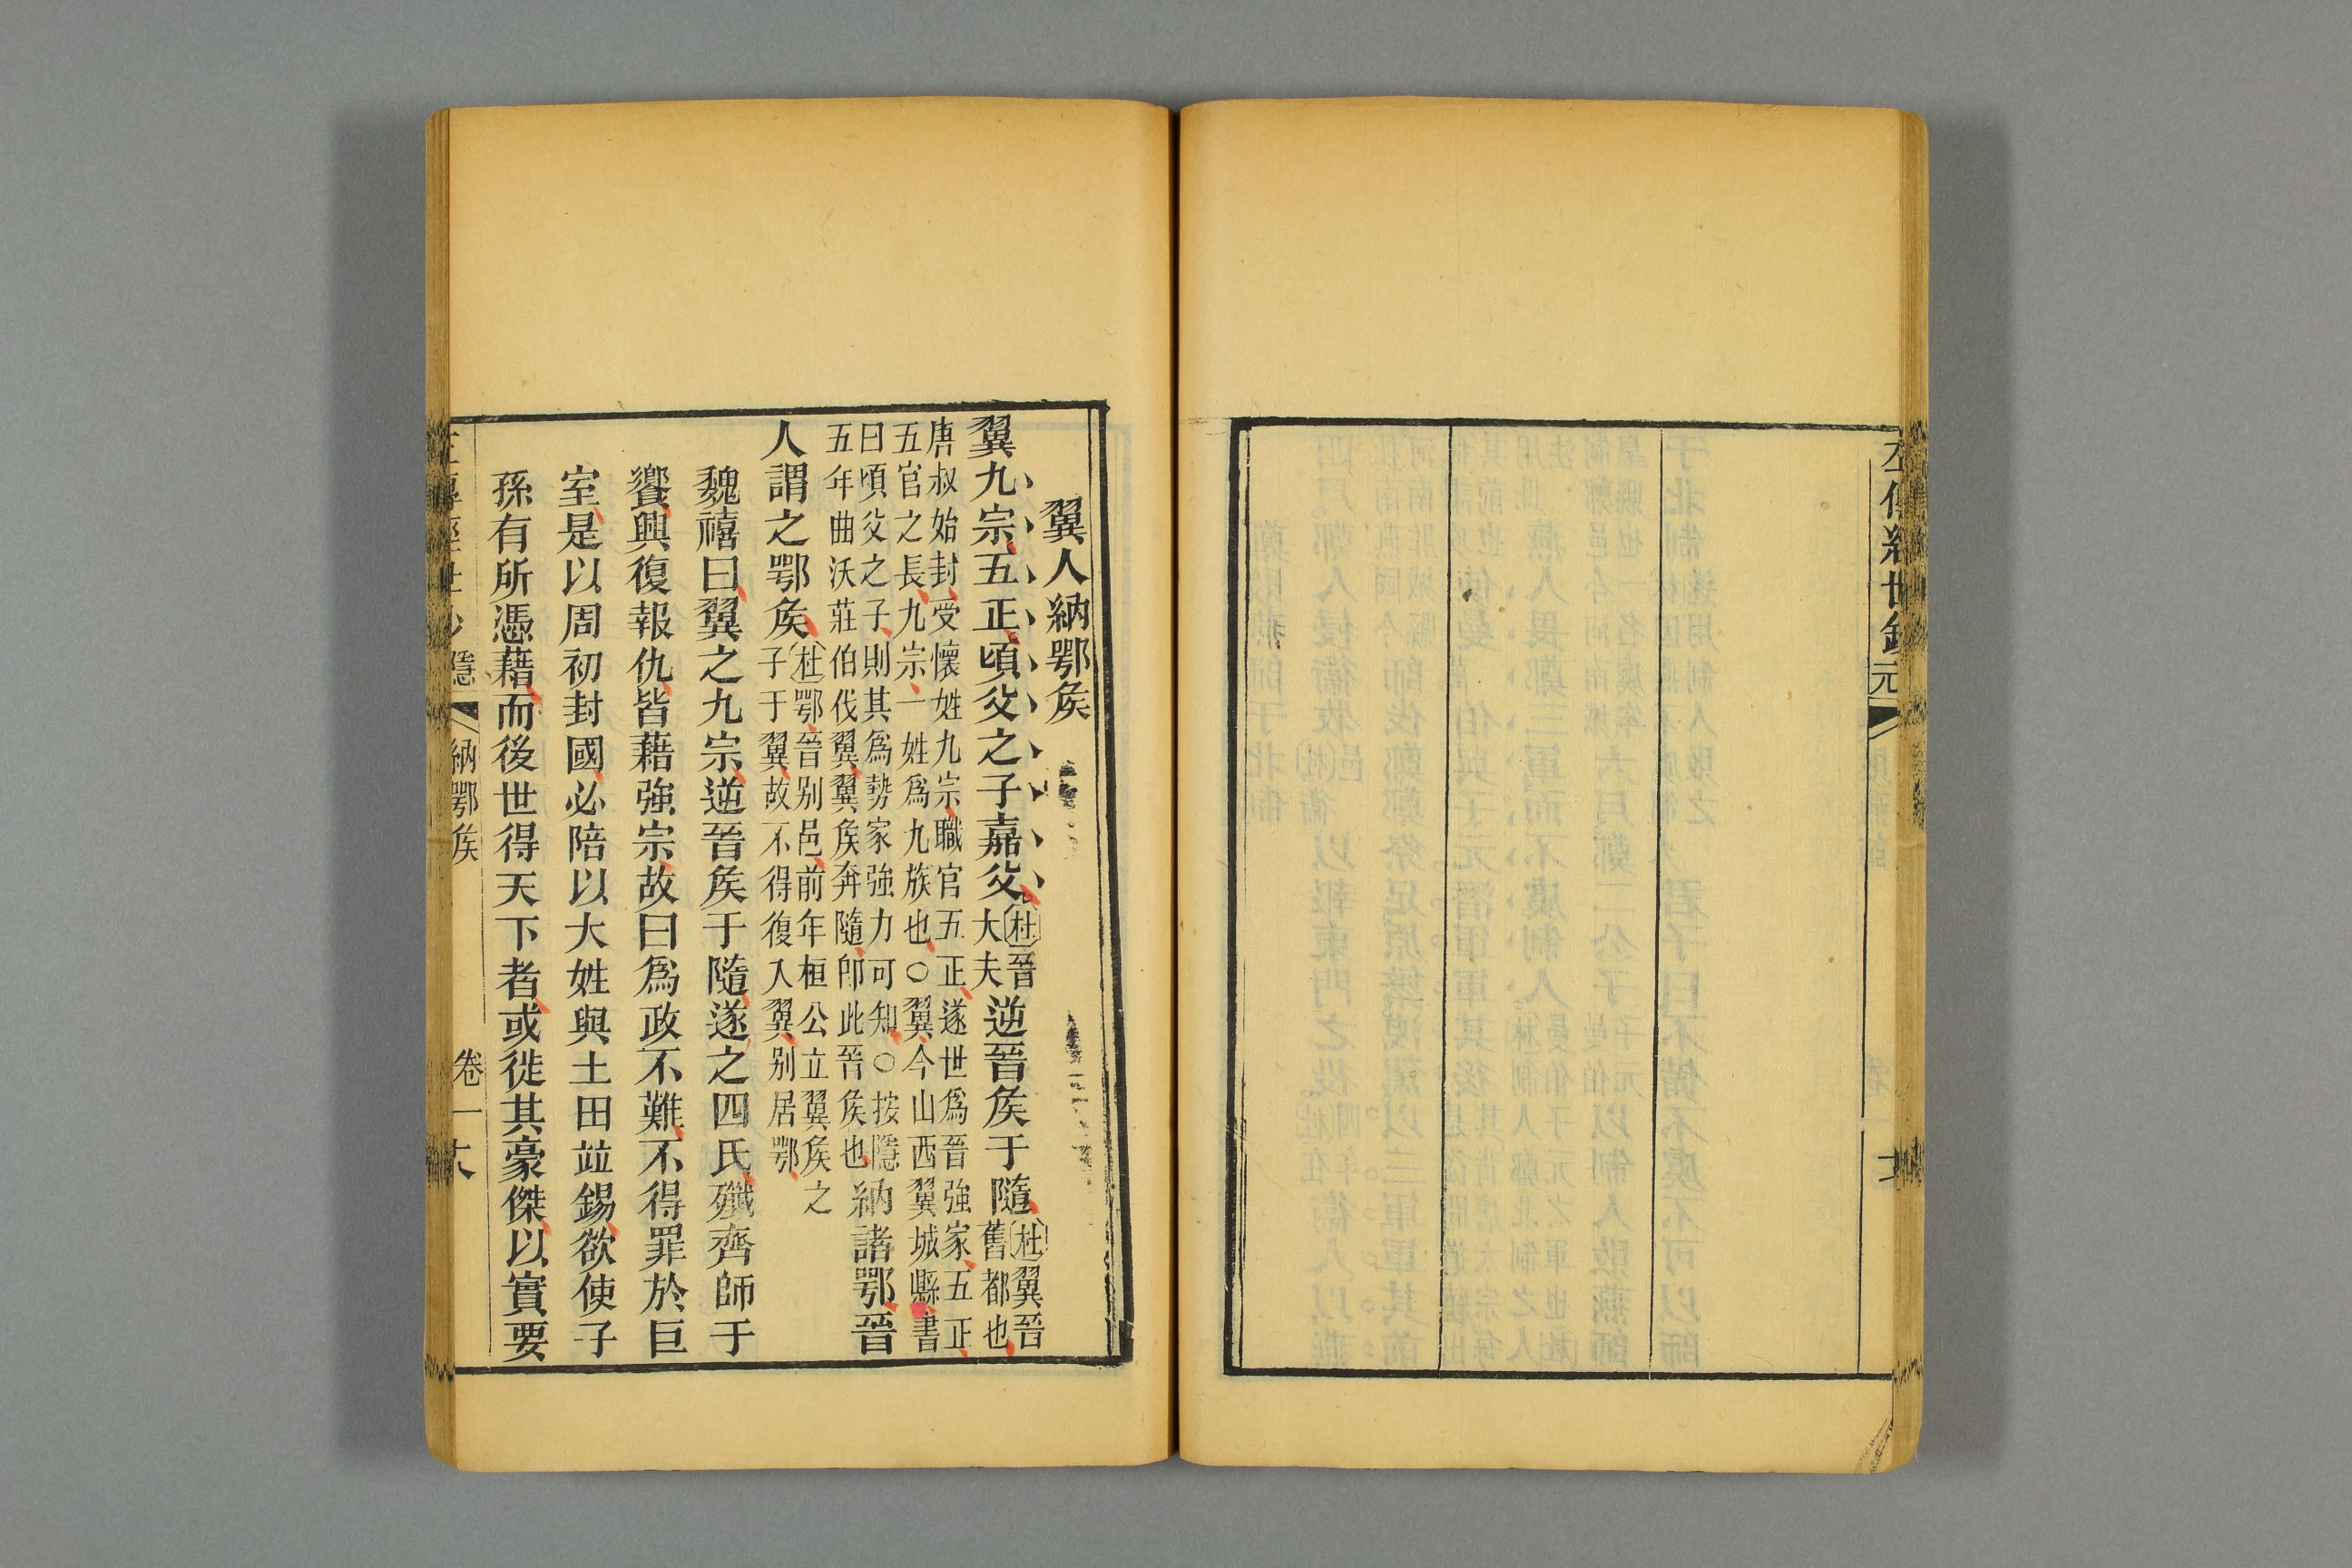 左傳經世鈔元
翼人納鄂矦
翼九宗五正頃父之子嘉父杜晉
大夫逆晉矦于隨杜翼晉
舊都也
唐叔始封受懷姓九宗職官五正遂世爲晉強家五正
五官之長九宗一姓爲九族也○翼今山西翼城縣書
曰頃父之子則其爲勢家強力可知○按隱
五年曲沃莊伯伐翼翼矦奔隨卽此晉矦也納諸鄂晉
人謂之鄂矦杜鄂晉别邑前年桓公立翼矦之
子于翼故不得復入翼别居鄂
魏禧曰翼之九宗逆晉矦于隨遂之四氏殲齊師于
饗興復報仇皆藉強宗故曰爲政不難不得罪於巨
室是以周初封國必陪以大姓與土田並錫欲使子
孫有所憑藉而後世得天下者或徙其豪傑以實要
隱
納鄂矦
卷一